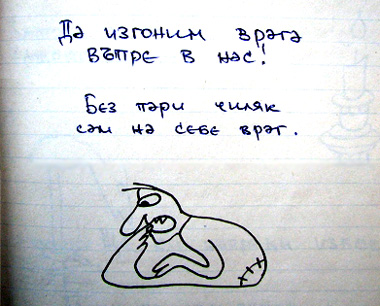 Да изгоним врага
вътре в нас!
Без пари чиляк
сам на себе враг.